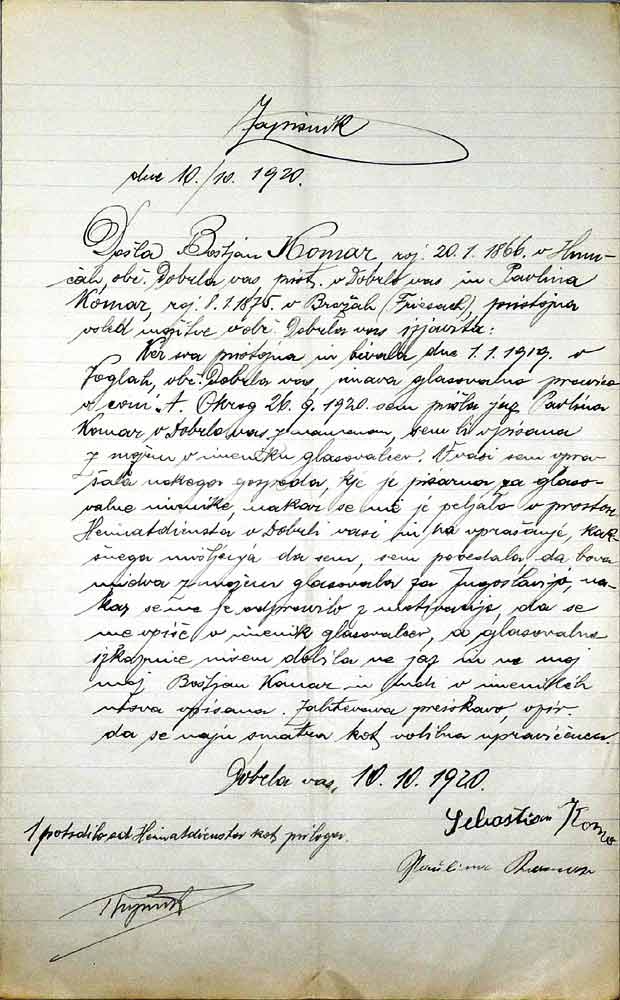 Zapisnik
dne 10./10. 1920.
Došla Boštjan Komar, roj. 20.1.1866. v Hum-
čah, obč. Dobrla vas, prist. v Dobrli vas in Pavlina
Komar, roj. 8.1.1875. v Brežah (Friesach), pristojna
vsled možitve v obč. Dobrla vas izjavita:
Ker sva pristojna in bivala dne 1.1.1919. v
Voglah, obč. Dobrla vas, imava glasovalno pravico
v coni A. Okrog 26.9.1920. sem prišla jaz Pavlina
Komar v Dobrlo vas z namenom, sem li vpisana
z možem v imeniku glasovalcev. V vasi sem vpra-
šala nekega gospoda, kje je pisarna za glaso-
valne imenike, nakar se me je peljalo v prostor
Heimatdiensta v Dobrli vasi in na vprašanje, kak-
šnega mišljenja da sem, sem povedala, da bova
midva z možem glasovala za Jugoslavijo, na-
kar se me je odpravilo z motivacijo, da se
me vpiše v imenik glasovalcev, a glasovalne
izkaznice nisem dobila ne jaz in ne moj
mož Boštjan Komar in tudi v imenikih
nisva vpisana. Zahtevava preiskavo,
da se naju smatra kot volilna upravičenca.
Dobrla vas, 10.10.1920.
Sebastian Komar
1 potrdilo od Heimatdiensta kot priloga.
Paulina Komar